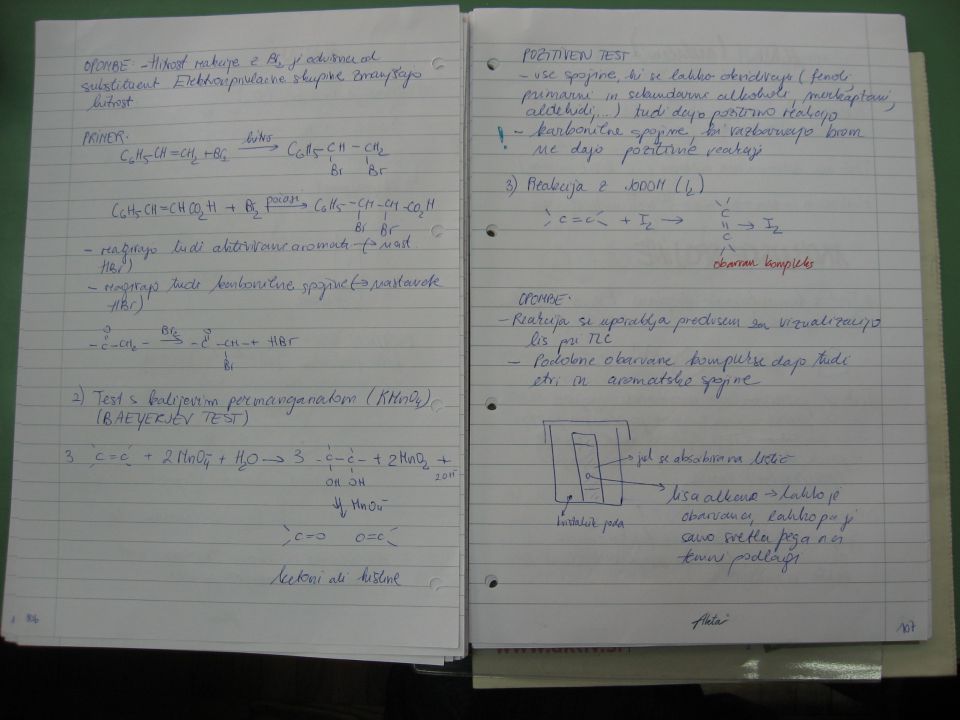 OPOMBE: - Hitrost reakcije z Br2 je odvisna od
substituent Elektronprivlačne skupine zmanjšajo
hitrost
PRIMER:
C6H5-CH=CH2 + Br2 hitro → C6H5-CH-CH2
Br Br
C6H5CH=CHCO2H + Br2 počasi → C6H5-CH-CH-CO2H
Br Br
- reagirajo tudi aktivirane aromati (→ nast.
HBr)
- reagirajo tudi karbonilne spojine (→ nastanek
HBr)
O O
-C-CH2- Br2 → -C-CH- + HBr
Br
2) Test s kalijevim permanganatom (KMnO4)
(BAEYERJEV TEST)
3 C=C + 2MnO4- + H2O → 3 -C-C- + 2MnO2 +
2OH-
OH OH
MnO4-
C=O O=C
ketoni ali kisline
106
POZITIVEN TEST
- vse spojine, ki se lahko oksidirajo (fenoli,
primarni in sekundarni alkoholi, merkaptani,
aldehidi,...) tudi dajo pozitivno reakcijo
! - karbonilne spojine, ki razbarvajo brom
ne dajo pozitivne reakcije
3) Reakcija z JODOM (I2)
C=C + I2 → C=C → I2
obarvan kompleks
OPOMBE:
- Reakcija se uporablja predvsem za vizualizacijo
lis pri TLC
- Podobne obarvane komplekse dajo tudi
etri in aromatske spojine
→ jod se absorbira na lističe
→ lisa alkena → lahko je
obarvana, lahko pa je
samo svetla pega na
temni podlagi
kristalčki joda
107